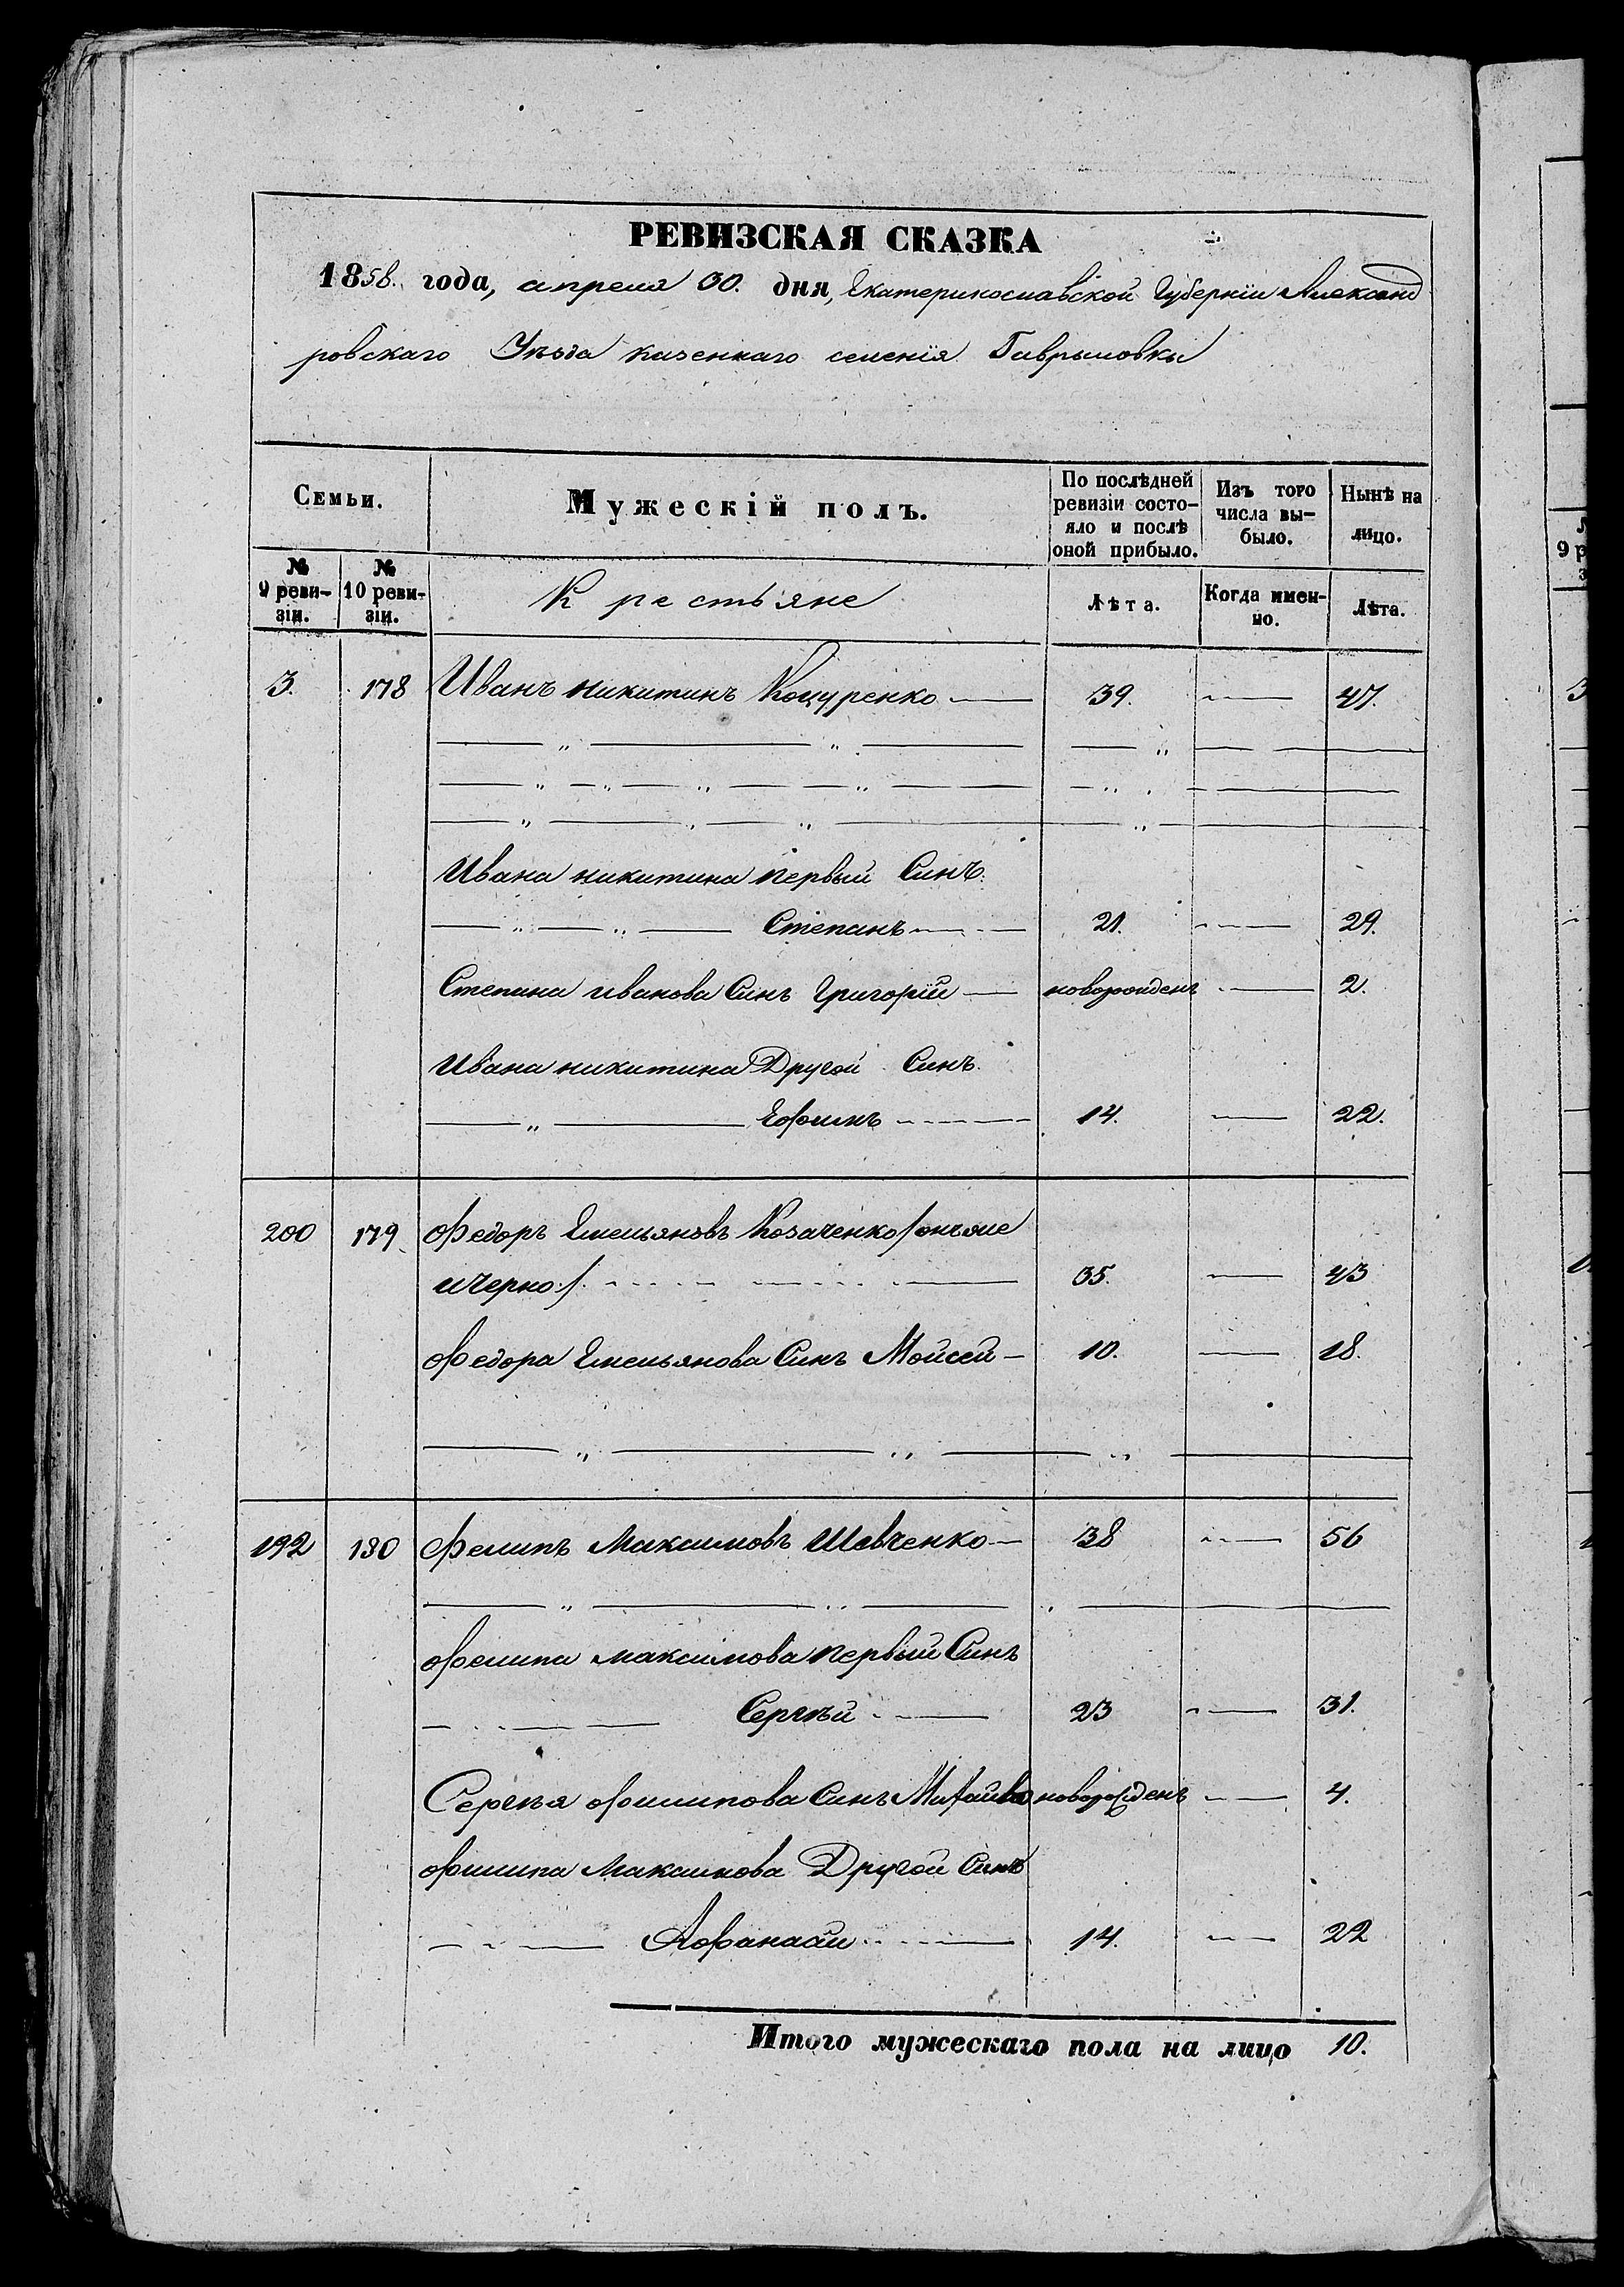 РЕВИЗСКАЯ СКАЗКА
1858. года, апреля 30. дня, Екатеринославской Губернiи Александ
ровскаго Уѣзда казеннаго селенiя Гаврыловки
Семьи.
Мужескiй полъ.
По послѣдней ревизiи состо-
яло и послѣ
оной прибыло.
Изъ того
числа вы-
было.
Нынѣ на
лицо.
№
9 реви-
зiи.
№
10 реви-
зiи.
Крестьяне
Лѣта.
Когда имен-
но.
Лѣта.
3. 178 Иванъ никитинъ Коцуренко 39. 47.
Ивана никитина первый Синъ.
Степанъ 21. 29.
Степана иванова Синъ Григорiй новорожденъ 2.
Ивана никитина Другой Синъ.
Ефимъ 14. 22.
200 179 Федоръ Емельяновъ Козаченко /онъже
ичерно:/. 35. 43
Федора Емельянова Синъ Мойсей 10. 18.
192 180 Филипъ Максимовъ Шевченко 38 56
Филипа максимова первый Синъ
Сергѣй 23 31.
Сергѣя Филипова Синъ Михайло новорожденъ 4.
Филипа Максимова Другой Синъ
Афанасiй 14. 22
Итого мужескаго пола на лицо 10.